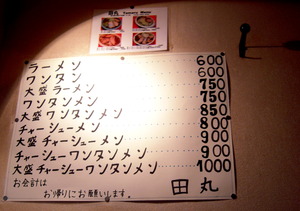 ラーメン 600
ワンタン 600
大盛ラーメン 750
ワンタンメン 750
大盛ワンタンメン 850
チャーシューメン 800
大盛チャーシューメン 900
チャーシューワンタンメン 900
大盛チャーシューワンタンメン 1000
お会計は
お帰りにお願いします。 田丸